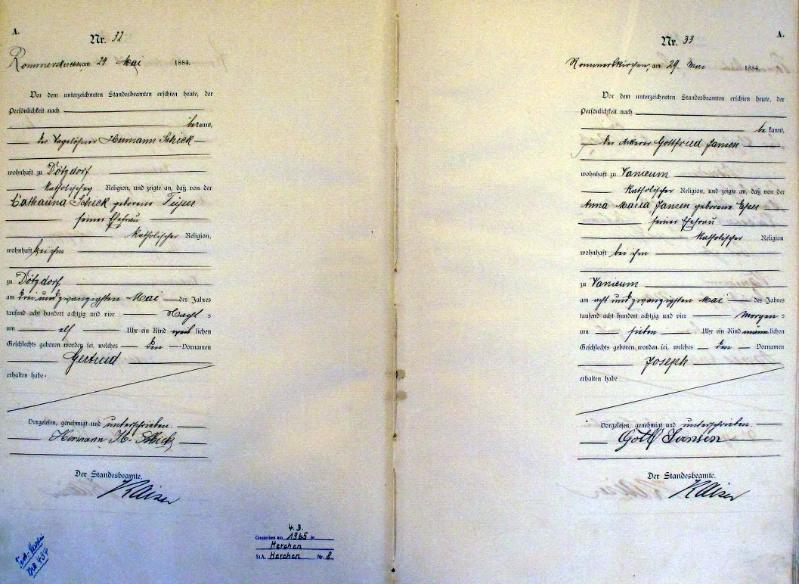 A.
Nr. 32
Rommerskirchen, am 24 Mai 1884.
Vor dem unterzeichneten Standesbeamten erschien heute, der
Persönlichkeit nach
bekannt,
der Tagelöhner Hermann Schick
wohnhaft zu Dötzdorf
katholischer Religion, und zeigte an, daß von der
Catharina Schick geborene
seiner Ehefrau
katholischer Religion,
wohnhaft bei ihm
zu Dötzdorf
am drei und zwanzigsten Mai des Jahres
tausend acht hundert achtzig und vier Nachts
um elf Uhr ein Kind weiblichen
Geschlechts geboren worden sei, welches den Vornamen
Gertrud
erhalten habe.
Vorgelesen, genehmigt und unterschrieben
Hermann H. Schick
Der Standesbeamte.
Kaiser
4.3.
Gestorben am 1965 in
Herchen
StA. Herchen Nr. 8
A.
Nr. 33
Rommerskirchen, am 29 Mai 1884.
Vor dem unterzeichneten Standesbeamten erschien heute, der
Persönlichkeit nach
bekannt,
der Ackerer Gottfried Jansen
wohnhaft zu Vanikum
katholischer Religion, und zeigte an, daß von der
Anna Maria Jansen geborene Esser
seiner Ehefrau
katholischer Religion
wohnhaft bei ihm
zu Vanikum
am acht und zwanzigsten Mai des Jahres
tausend acht hundert achtzig und vier Morgens
um sieben Uhr ein Kind männlichen
Geschlechts geboren worden sei, welches den Vornamen
Joseph
erhalten habe
Vorgelesen, genehmigt und unterschrieben
Gottf Jansen
Der Standesbeamte.
Kaiser